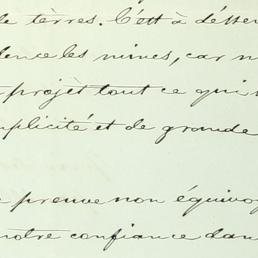 le terres. C'est à dessein
dence les mines, car n
projèt tout ce qui
mplicité et de grande
e preuve non équivo
notre confiance dan